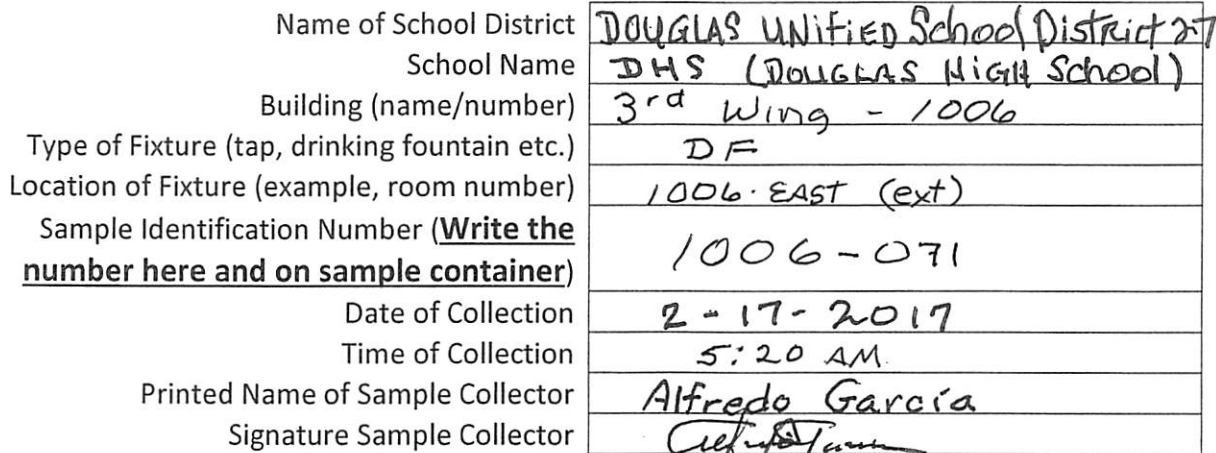 Name of School District DOUGLAS UNIFIED School District 27
School Name DHS (DOUGLAS HIGH School)
Building (name/number) 3rd Wing - 1006
Type of Fixture (tap, drinking fountain etc.) DF
Location of Fixture (example, room number) 1006. EAST (ext)
Sample Identification Number (Write the
number here and on sample container) 1006-071
Date of Collection 2-17-2017
Time of Collection 5:20 AM.
Printed Name of Sample Collector Alfredo García
Signature Sample Collector